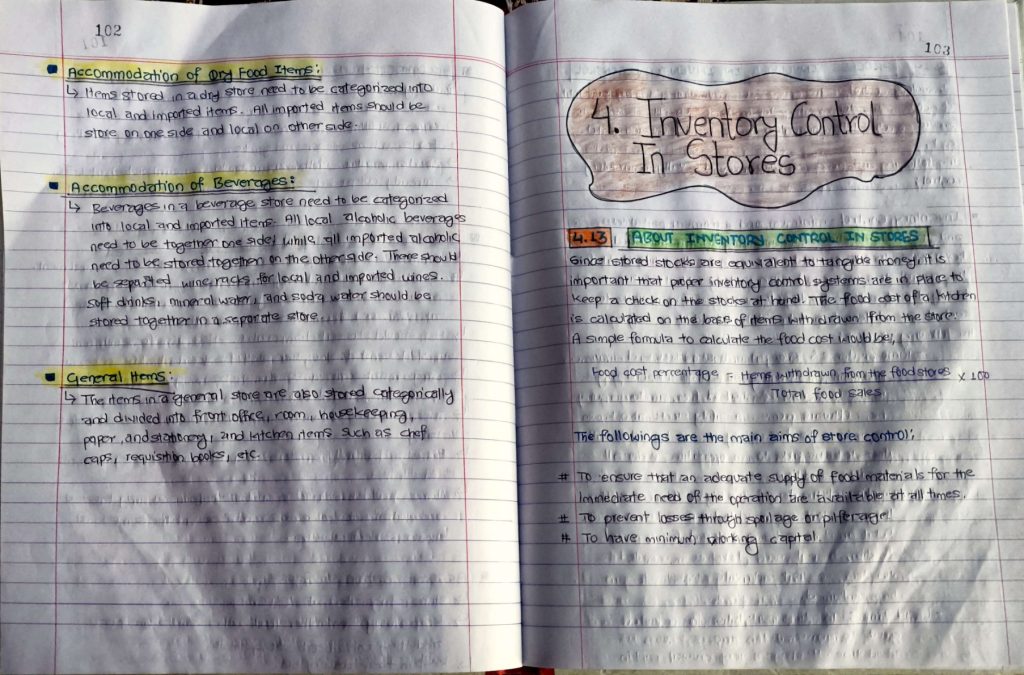 102
Accommodation of Dry Food Items:
↳ Items stored in a dry store need to be categorized into
local and imported items. All imported items should be
store on one side and local on other side.
Accommodation of Beverages:
↳ Beverages in a beverage store need to be categorized
into local and imported items. All local alcoholic beverages
need to be together one side, while all imported alcoholic
need to be stored together on the other side. There should
be separted wine racks for local and imported wines.
soft drinks, mineral water, and soda water should be
stored together in a separate store.
General Items:
↳ The items in a general store are also stored categorically
and divided into front office, room, housekeeping,
paper, and stationery, and kitchen items such as chef
caps, requisition books, etc.
103
4. Inventory Control
In Stores
4.13 ABOUT INVENTORY CONTROL IN STORES
Since stored stocks are equivalent to tangible money, it is
important that proper inventory control systems are in place to
keep a check on the stocks at hand. The food cost of a kitchen
is calculated on the base of items withdrawn from the store.
A simple formula to calculate the food cost would be,
Food cost percentage = Items withdrawn from the food stores x 100
Total food sales
The followings are the main aims of store control:
# To ensure that an adequate supply of food materials for the
immediate need of the operation are available at all times.
# To prevent losses through spoilage or pilferage
# To have minimum working capital.